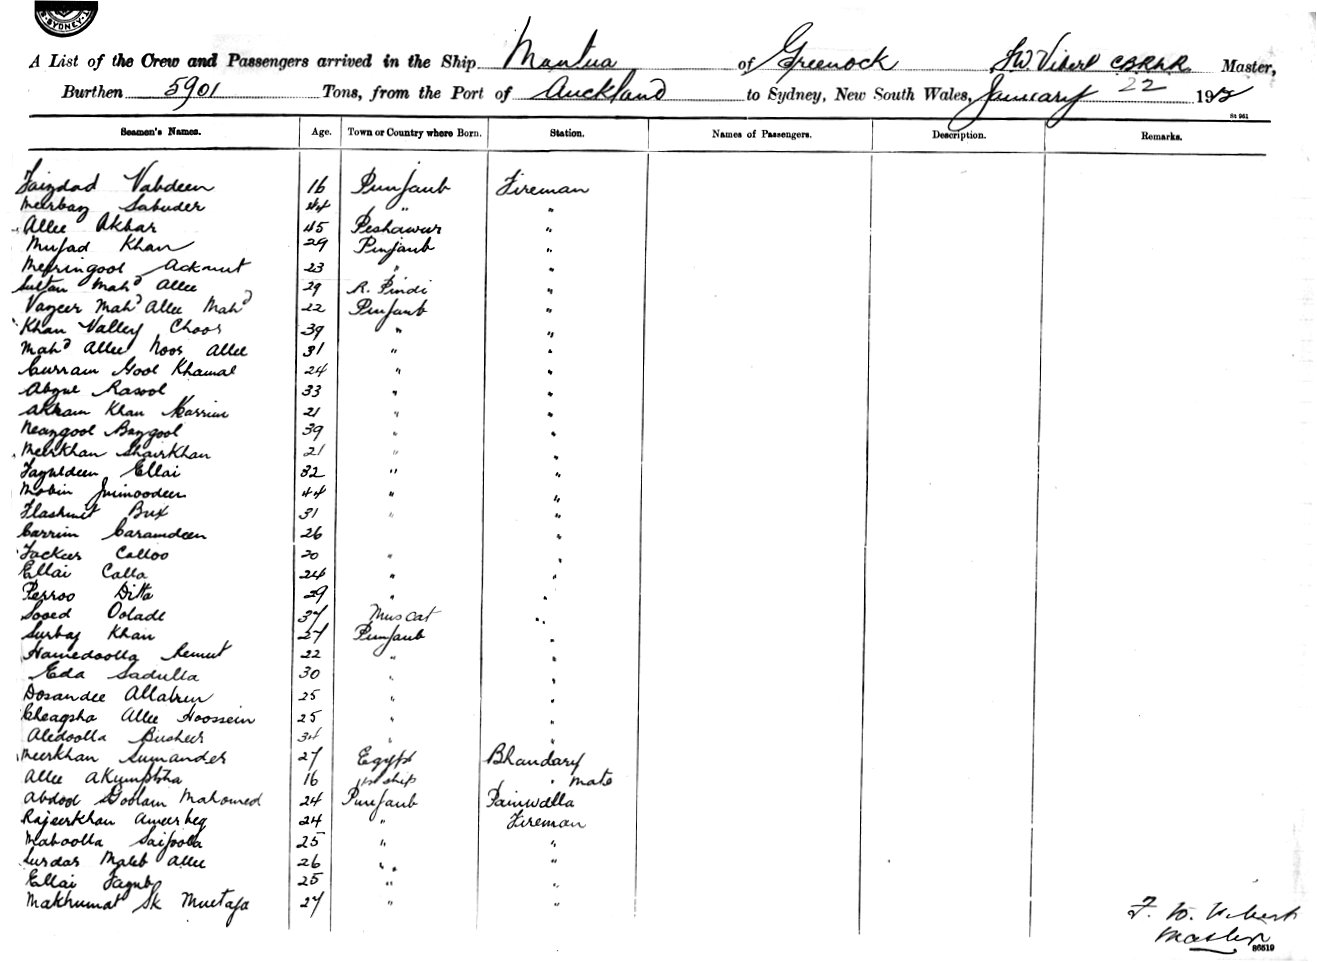 SYDNEY
A List of the Crew and Passengers arrived in the Ship Mantua of Greenock F.W. Vibert C.B.R.N.R. Master,
Burthen 5901 Tons, from the Port of Auckland to Sydney, New South Wales, January 22 191
St 961
Seamen's Names. Age. Town or Country where Born. Station. Names of Passengers. Description. Remarks.
Faizdad Vabdeen 16 Punjaub Fireman
Meerbaz Sabuder 44 " "
Allee Akbar 45 Peshawur "
Mujad Khan 29 Punjaub "
Ackmut 23 " "
Sultan Mahd Allee 29 R. Pindi "
Vazeer Mahd Allee Mahd 22 Punjaub "
Khan Valley Choos 39 " "
Mahd Allee Noor Allee 31 " "
Curram Gool Khamal 24 " "
Rasool 33 " "
Akram Khan Karrim 21 " "
Neazgool Bazgool 39 " "
Meerkhan Shairkhan 21 " "
Ellai 32 " "
Mobin Jumoodeen 44 " "
Bux 31 " "
Carrim Caramdeen 26 "
Fackeer Calloo 20 " "
Ellai Calla 24 " "
Perroo Ditta 29 " "
Sooed Oolade 37 Muscat "
Surbaz Khan 27 Punjaub "
Hamedoolla Remut 22 " "
Eda Sadulla 30 " "
Dosandee Allabux 25 " "
Allee Hoossein 25 " "
Busheer 34 " "
Meerkhan Sumander 27 Egypt Bhandary
Allee 16 In ship " Mate
Abdool Goolam Mahomed 24 Punjaub Painwalla
Rajeerkhan Ameerbeg 24 " Fireman
Maboolla Saifoolla 25 " "
Surdar Maleb Allee 26 " "
Ellai 25 " "
Makhumat Sk Mustafa 27 " "
F. W. Vibert
Master
86519